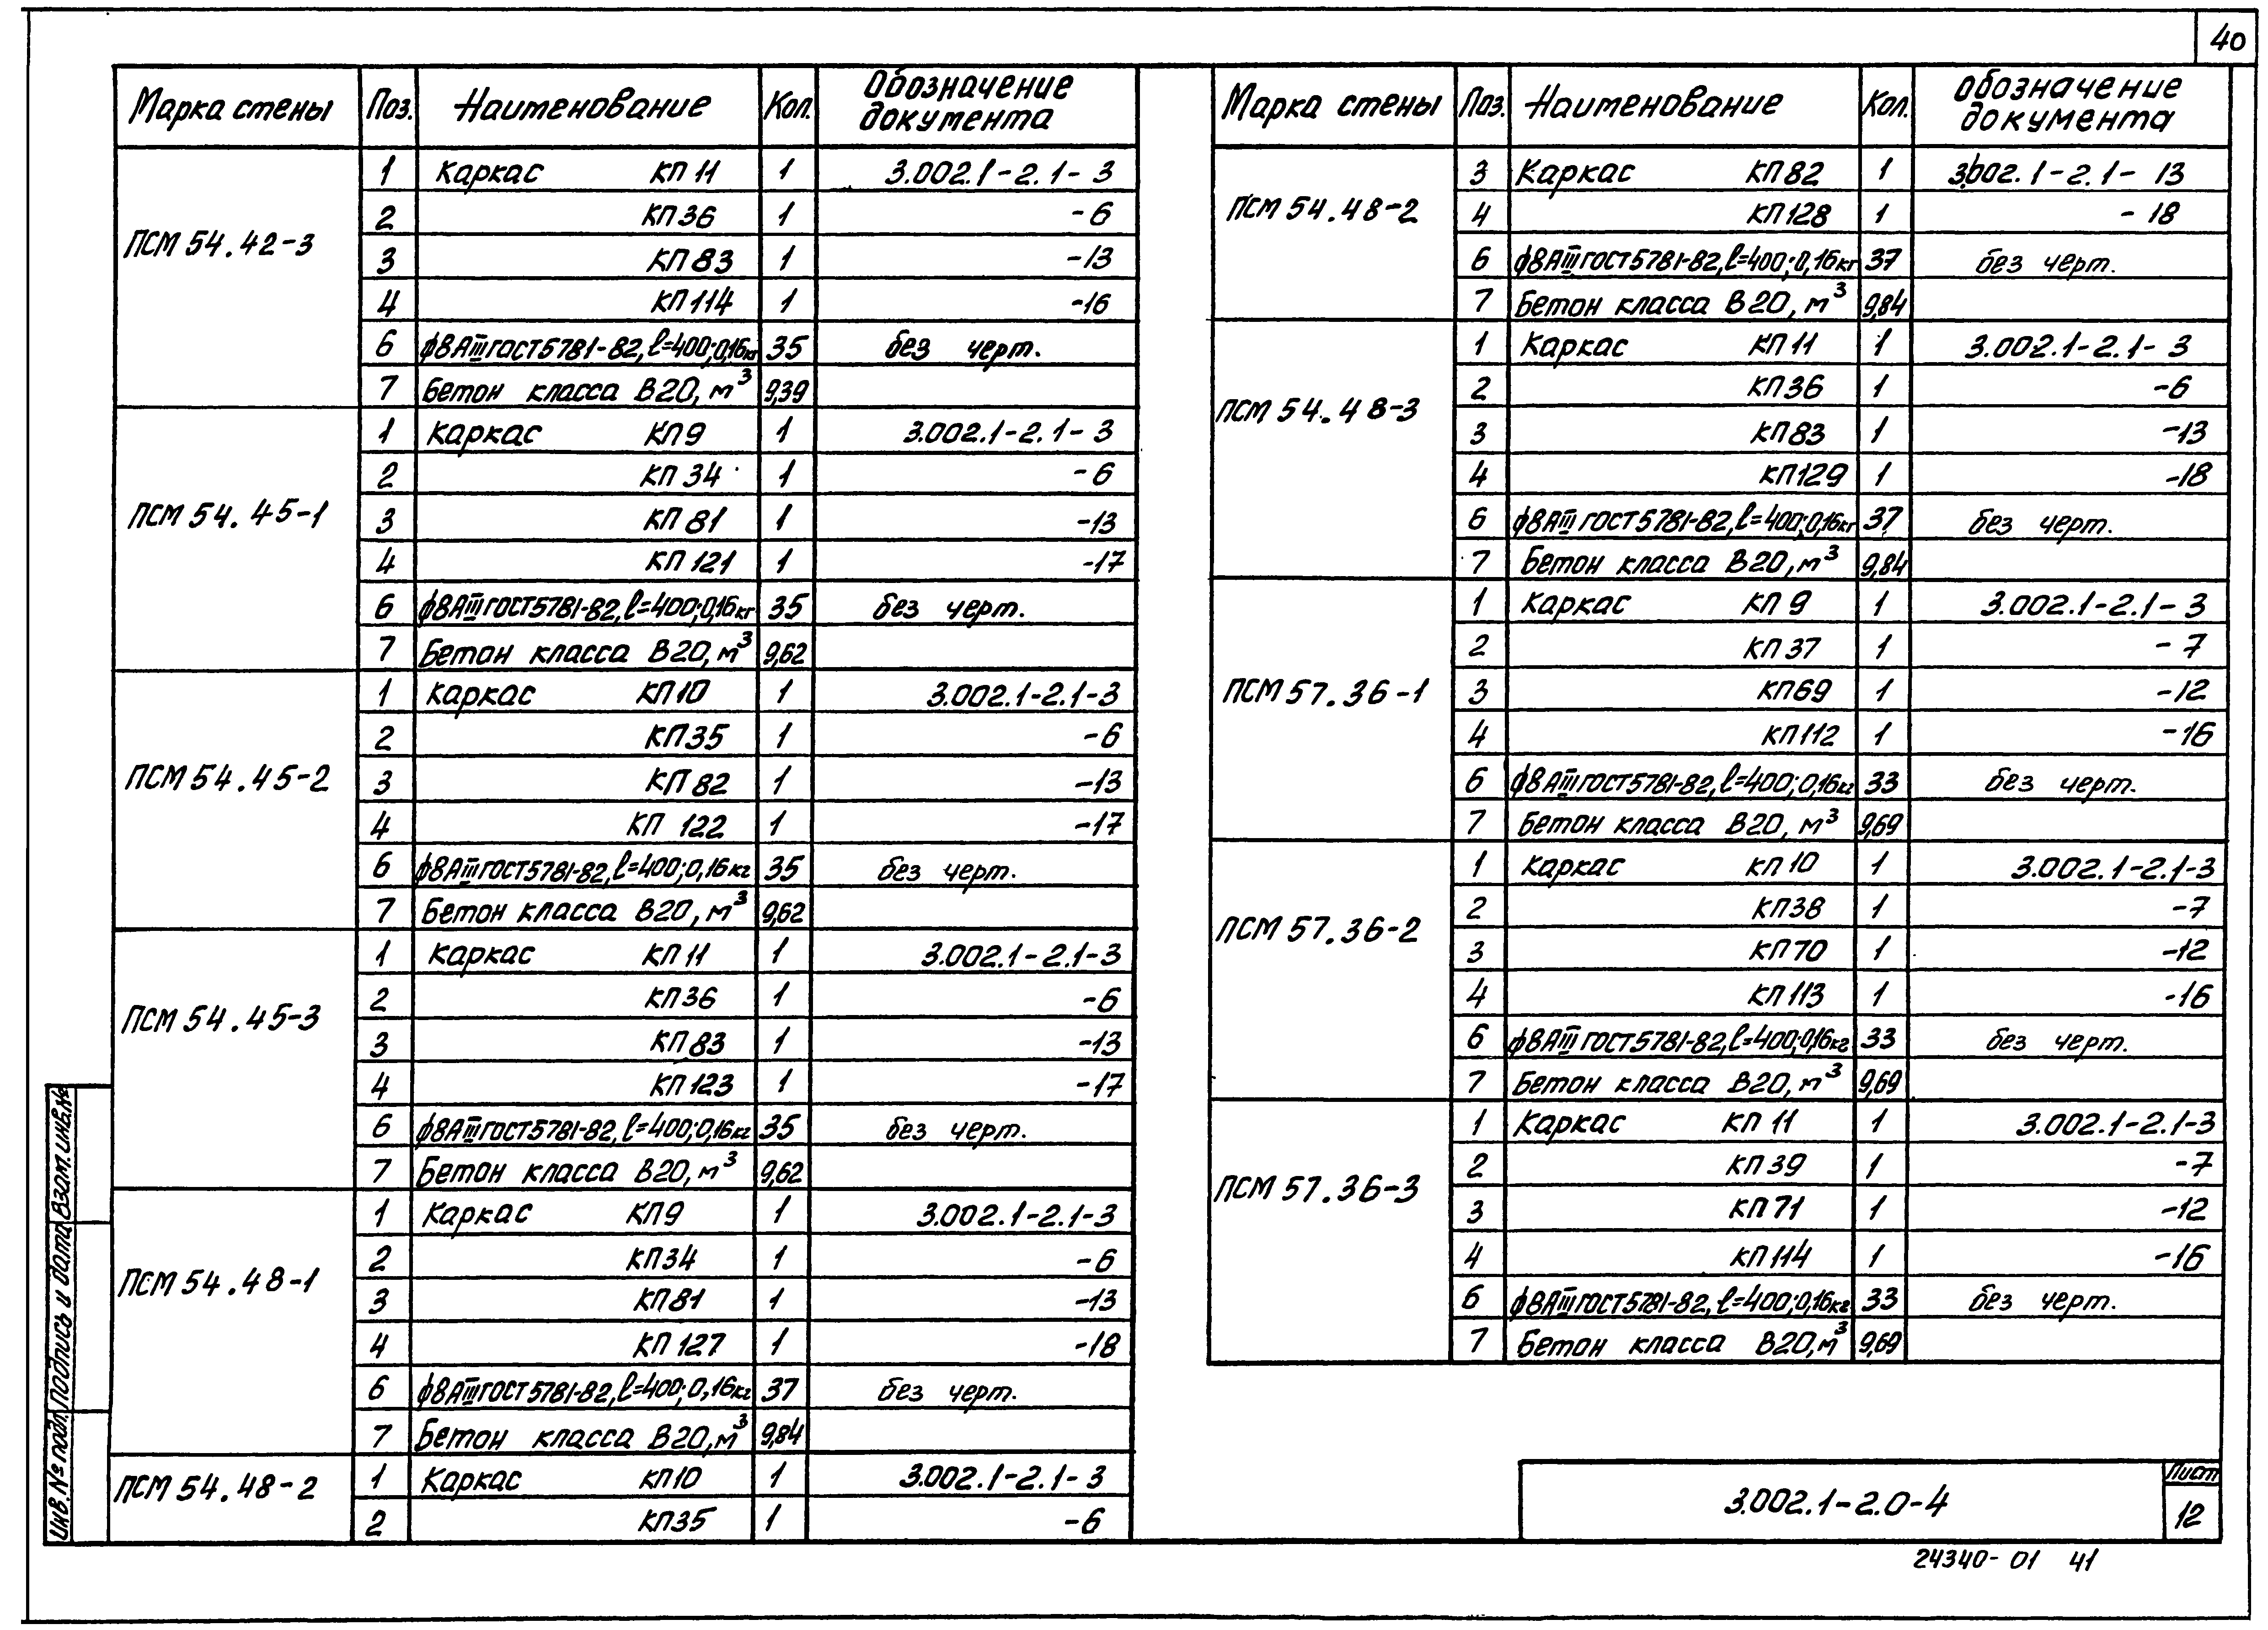 40
Марка стены Поз. Наименование Кол. Обозначение документа
ПСМ 54.42-3
1 Каркас КП 11 1 3.002.1-2.1-3
2 КП36 1 -6
3 КП83 1 -13
4 КП114 1 -16
6 ϕ8АIII ГОСТ5781-82, ℓ=400; 0,16кг 35 без черт.
7 Бетон класса В20, м³ 9,39
ПСМ 54.45-1
1 Каркас КП9 1 3.002.1-2.1-3
2 КП 34 1 -6
3 КП 81 1 -13
4 КП 121 1 -17
6 ϕ8АIII ГОСТ5781-82, ℓ=400; 0,16кг 35 без черт.
7 Бетон класса В20, м³ 9,62
ПСМ 54.45-2
1 Каркас КП10 1 3.002.1-2.1-3
2 КП35 1 -6
3 КП 82 1 -13
4 КП 122 1 -17
6 ϕ8АIII ГОСТ5781-82, ℓ=400; 0,16кг 35 без черт.
7 Бетон класса В20, м³ 9,62
ПСМ 54.45-3
1 Каркас КП 11 1 3.002.1-2.1-3
2 КП36 1 -6
3 КП83 1 -13
4 КП123 1 -17
6 ϕ8АIII ГОСТ5781-82, ℓ=400; 0,16кг 35 без черт.
7 Бетон класса В20, м³ 9,62
ПСМ 54.48-1
1 Каркас КП9 1 3.002.1-2.1-3
2 КП34 1 -6
3 КП81 1 -13
4 КП 127 1 -18
6 ϕ8АIII ГОСТ5781-82, ℓ=400; 0,16кг 37 без черт.
7 Бетон класса В20, м³ 9,84
ПСМ 54.48-2
1 Каркас КП10 1 3.002.1-2.1-3
2 КП35 1 -6
Марка стены Поз. Наименование Кол. Обозначение документа
ПСМ 54.48-2
3 Каркас КП82 1 3.002.1-2.1-13
4 КП128 1 -18
6 ϕ8АIII ГОСТ5781-82, ℓ=400; 0,16кг 37 без черт.
7 Бетон класса В20, м³ 9,84
ПСМ 54.48-3
1 Каркас КП11 1 3.002.1-2.1-3
2 КП36 1 -6
3 КП83 1 -13
4 КП129 1 -18
6 ϕ8АIII ГОСТ5781-82, ℓ=400; 0,16кг 37 без черт.
7 Бетон класса В20, м³ 9,84
ПСМ 57.36-1
1 Каркас КП 9 1 3.002.1-2.1-3
2 КП37 1 -7
3 КП69 1 -12
4 КП112 1 -16
6 ϕ8АIII ГОСТ5781-82, ℓ=400; 0,16кг 33 без черт.
7 Бетон класса В20, м³ 9,69
ПСМ 57.36-2
1 Каркас КП 10 1 3.002.1-2.1-3
2 КП38 1 -7
3 КП70 1 -12
4 КП113 1 -16
6 ϕ8АIII ГОСТ5781-82, ℓ=400; 0,16кг 33 без черт.
7 Бетон класса В20, м³ 9,69
ПСМ 57.36-3
1 Каркас КП 11 1 3.002.1-2.1-3
2 КП39 1 -7
3 КП71 1 -12
4 КП114 1 -16
6 ϕ8АIII ГОСТ5781-82, ℓ=400; 0,16кг 33 без черт.
7 Бетон класса В20, м³ 9,69
Инв.№ подл. Подпись и дата Взам.инв.№
3.002.1-2.0-4
Лист
12
24340-01 41